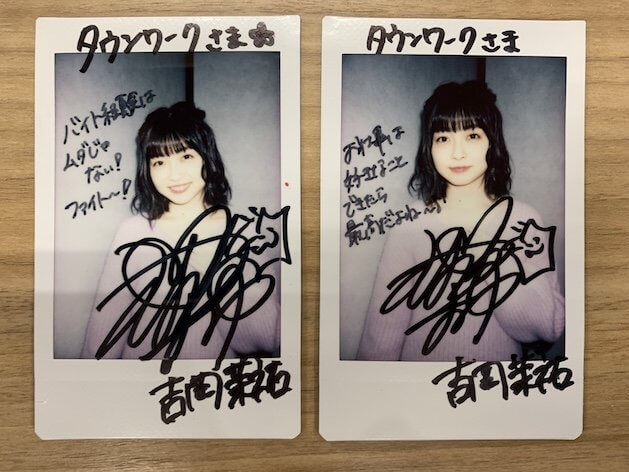 タウンワークさま☆
バイト経験は
ムダじゃ
ない!
ファイト〜!
吉岡茉祐
タウンワークさま
お仕事は
好きなこと
できたら
最高だよね〜♪
吉岡茉祐